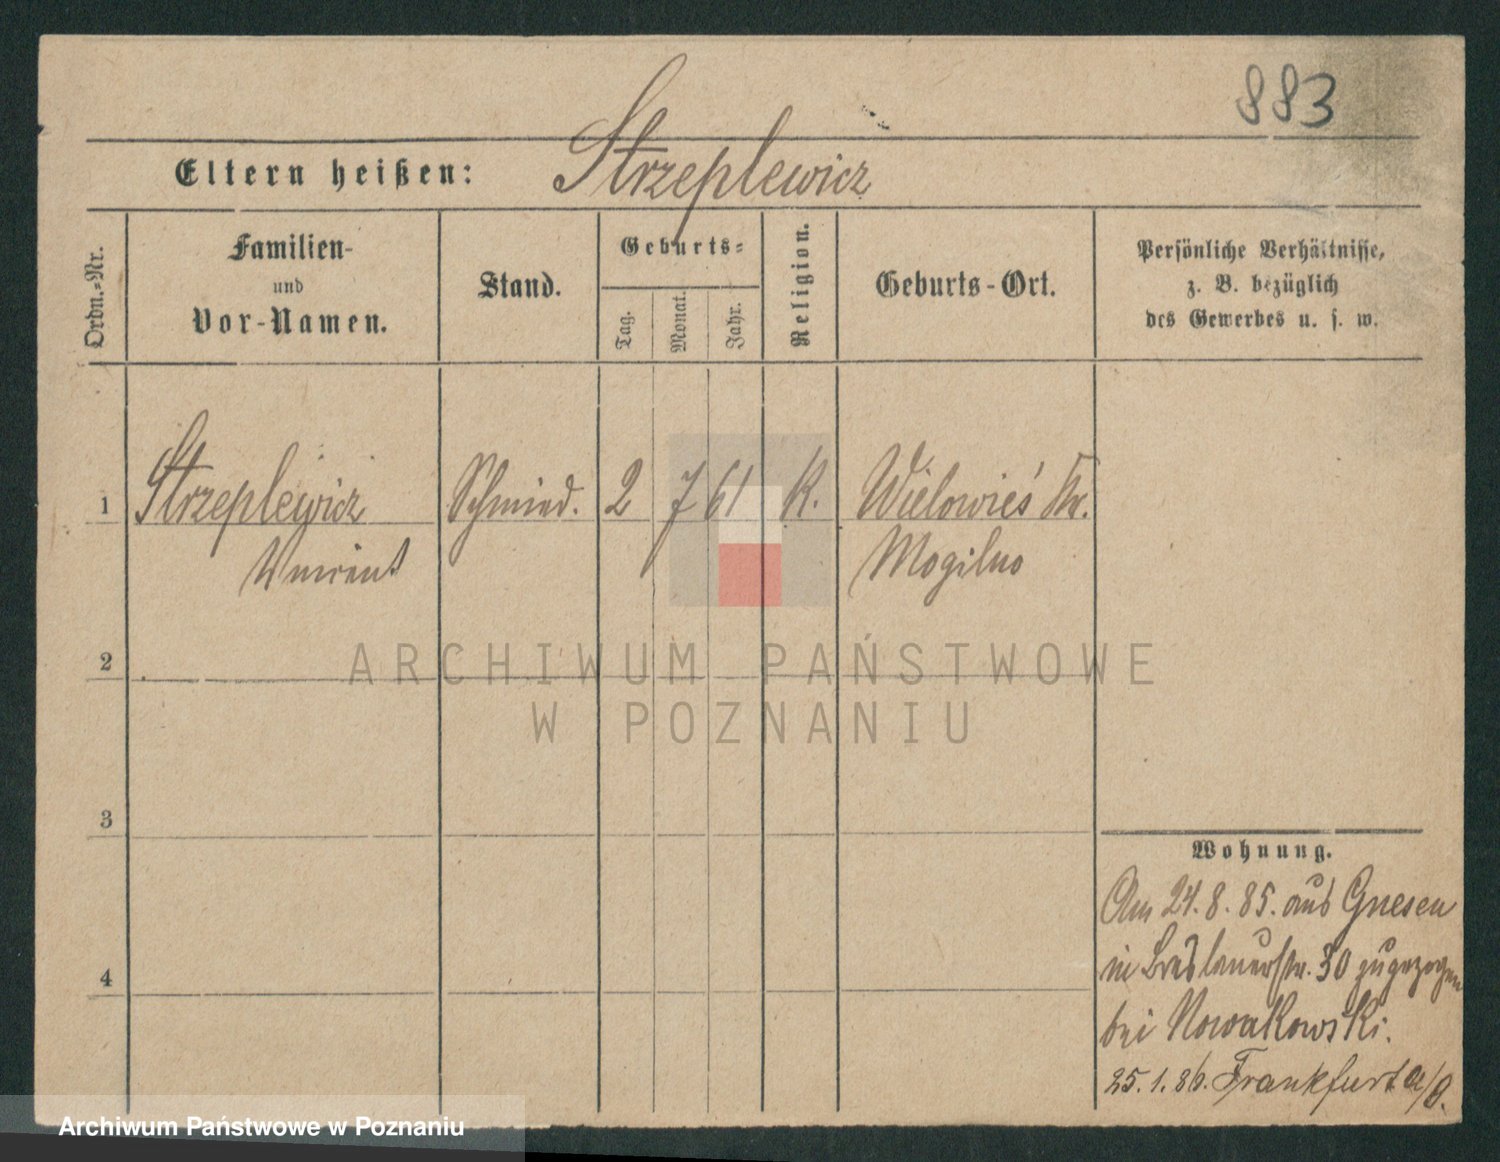 883
Eltern heißen: Strzeplewicz
Ordn.-Nr.
Familien-
und
Vor-Namen.
Stand.
Geburts-
Tag.
Monat.
Jahr.
Religion.
Geburts-Ort.
Persönliche Verhältnisse,
z. B. bezüglich
des Gewerbes u. s. w.
1 Strzeplewicz Schmied. 2 7 61 K. Wielowieś Kr.
Mogilno
2
3
4
Wohnung.
Am 24. 8. 85. aus Gnesen
in Breslauerstr. 30 zugezogen
bei Nowakowski.
25. 1. 86. Frankfurt a/O.
ARCHIWUM PAŃSTWOWE
W POZNANIU
Archiwum Państwowe w Poznaniu